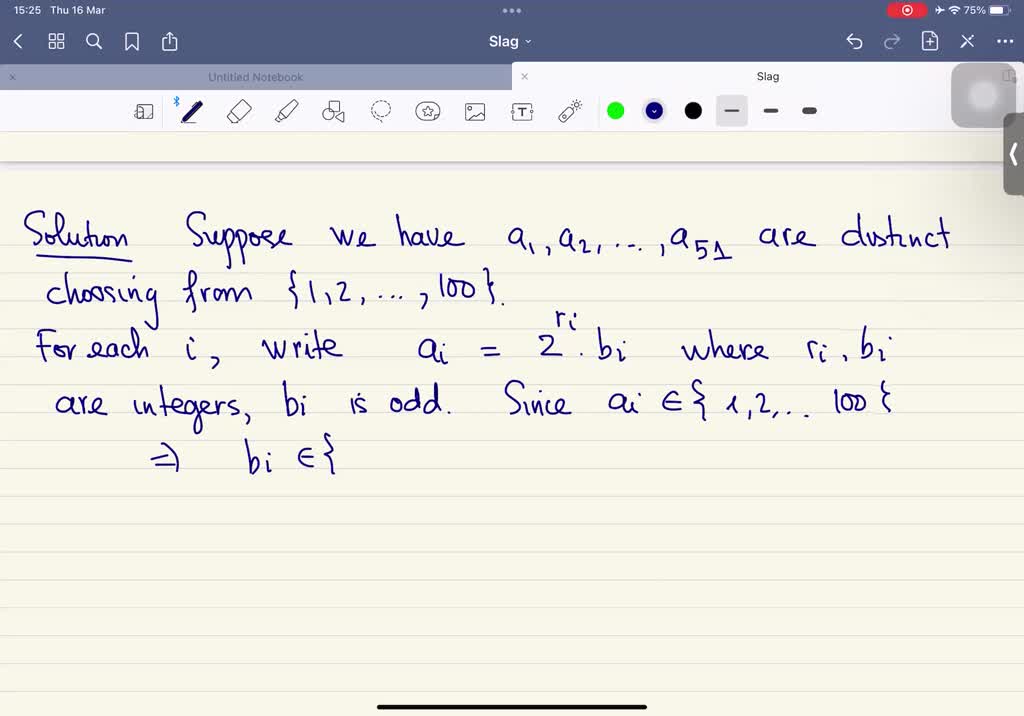 15:25 Thu 16 Mar
75%
Slag
Untitled Notebook
Slag
Solution Suppose we have a₁, a₂, ..., a₅₁ are distinct
choosing from {1, 2, ..., 100}.
For each i, write aᵢ = 2^{rᵢ} . bᵢ where rᵢ, bᵢ
are integers, bᵢ is odd. Since aᵢ ∈ {1, 2, ... 100}
⇒ bᵢ ∈ {